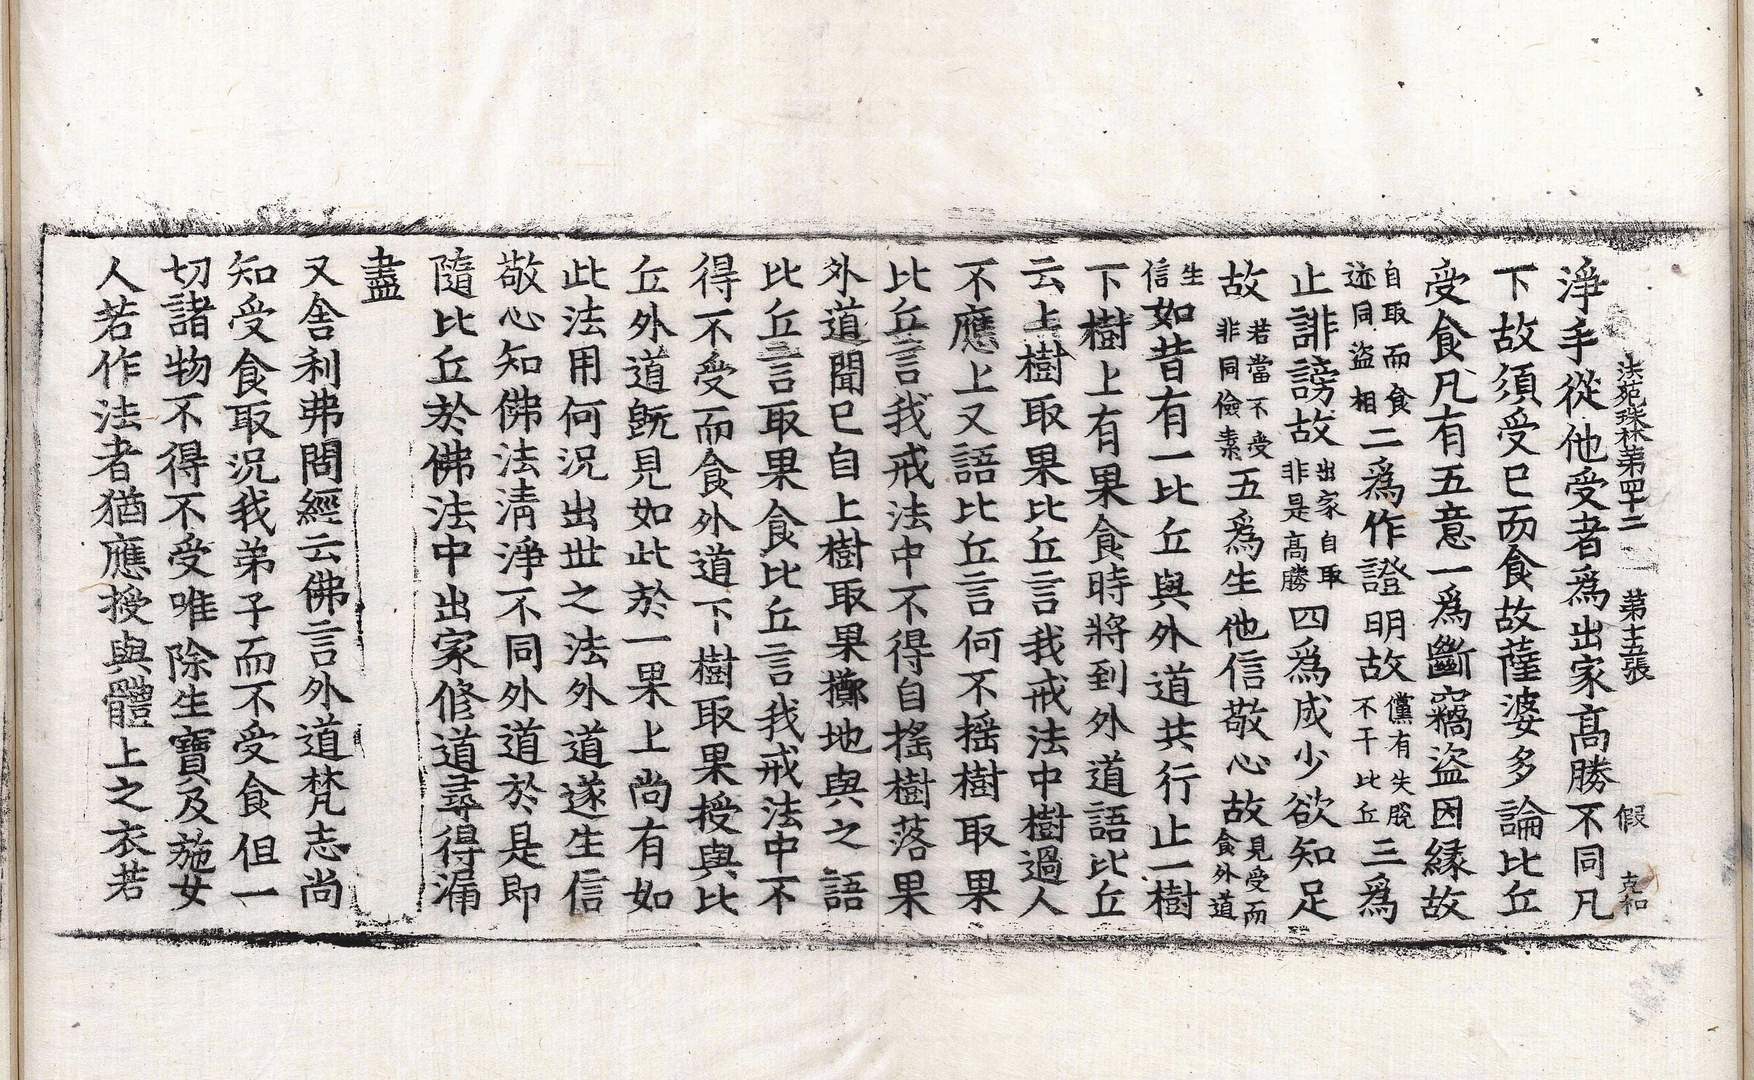 法苑珠林第四十二　第十五張　假　克和
淨手從他受者爲出家高勝不同凡
下故須受已而食故薩婆多論比丘
受食凡有五意一爲斷竊盜因緣故
自取而食迹同盜相二爲作證明故儻有失脫不干比丘三爲
止誹謗故出家自取非是高勝四爲成少欲知足
故若當不受非同儉素五爲生他信敬心故見受而食外道
生信如昔有一比丘與外道共行止一樹
下樹上有果食時將到外道語比丘
云上樹取果比丘言我戒法中樹過人
不應上又語比丘言何不搖樹取果
比丘言我戒法中不得自搖樹落果
外道聞已自上樹取果擲地與之語
比丘言取果食比丘言我戒法中不
得不受而食外道下樹取果授與比
丘外道旣見如此於一果上尚有如
此法用何況出世之法外道遂生信
敬心知佛法淸淨不同外道於是即
隨比丘於佛法中出家修道尋得漏
盡
又舍利弗問經云佛言外道梵志尚
知受食取況我弟子而不受食但一
切諸物不得不受唯除生寶及施女
人若作法者猶應授與體上之衣若